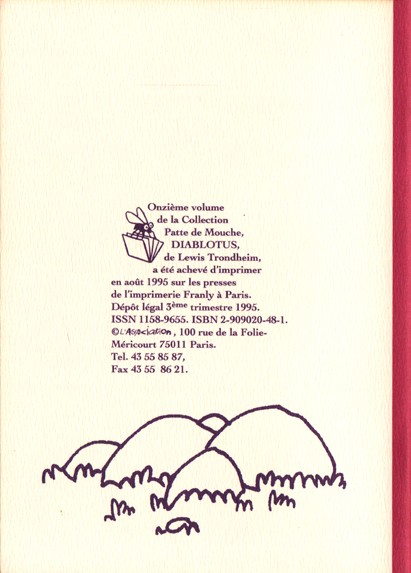 Onzième volume
de la Collection
Patte de Mouche,
DIABLOTUS,
de Lewis Trondheim,
a été achevé d'imprimer
en août 1995 sur les presses
de l'imprimerie Franly à Paris.
Dépôt légal 3ème trimestre 1995.
ISSN 1158-9655. ISBN 2-909020-48-1.
© L'Association, 100 rue de la Folie-
Méricourt 75011 Paris.
Tel. 43 55 85 87,
Fax 43 55 86 21.